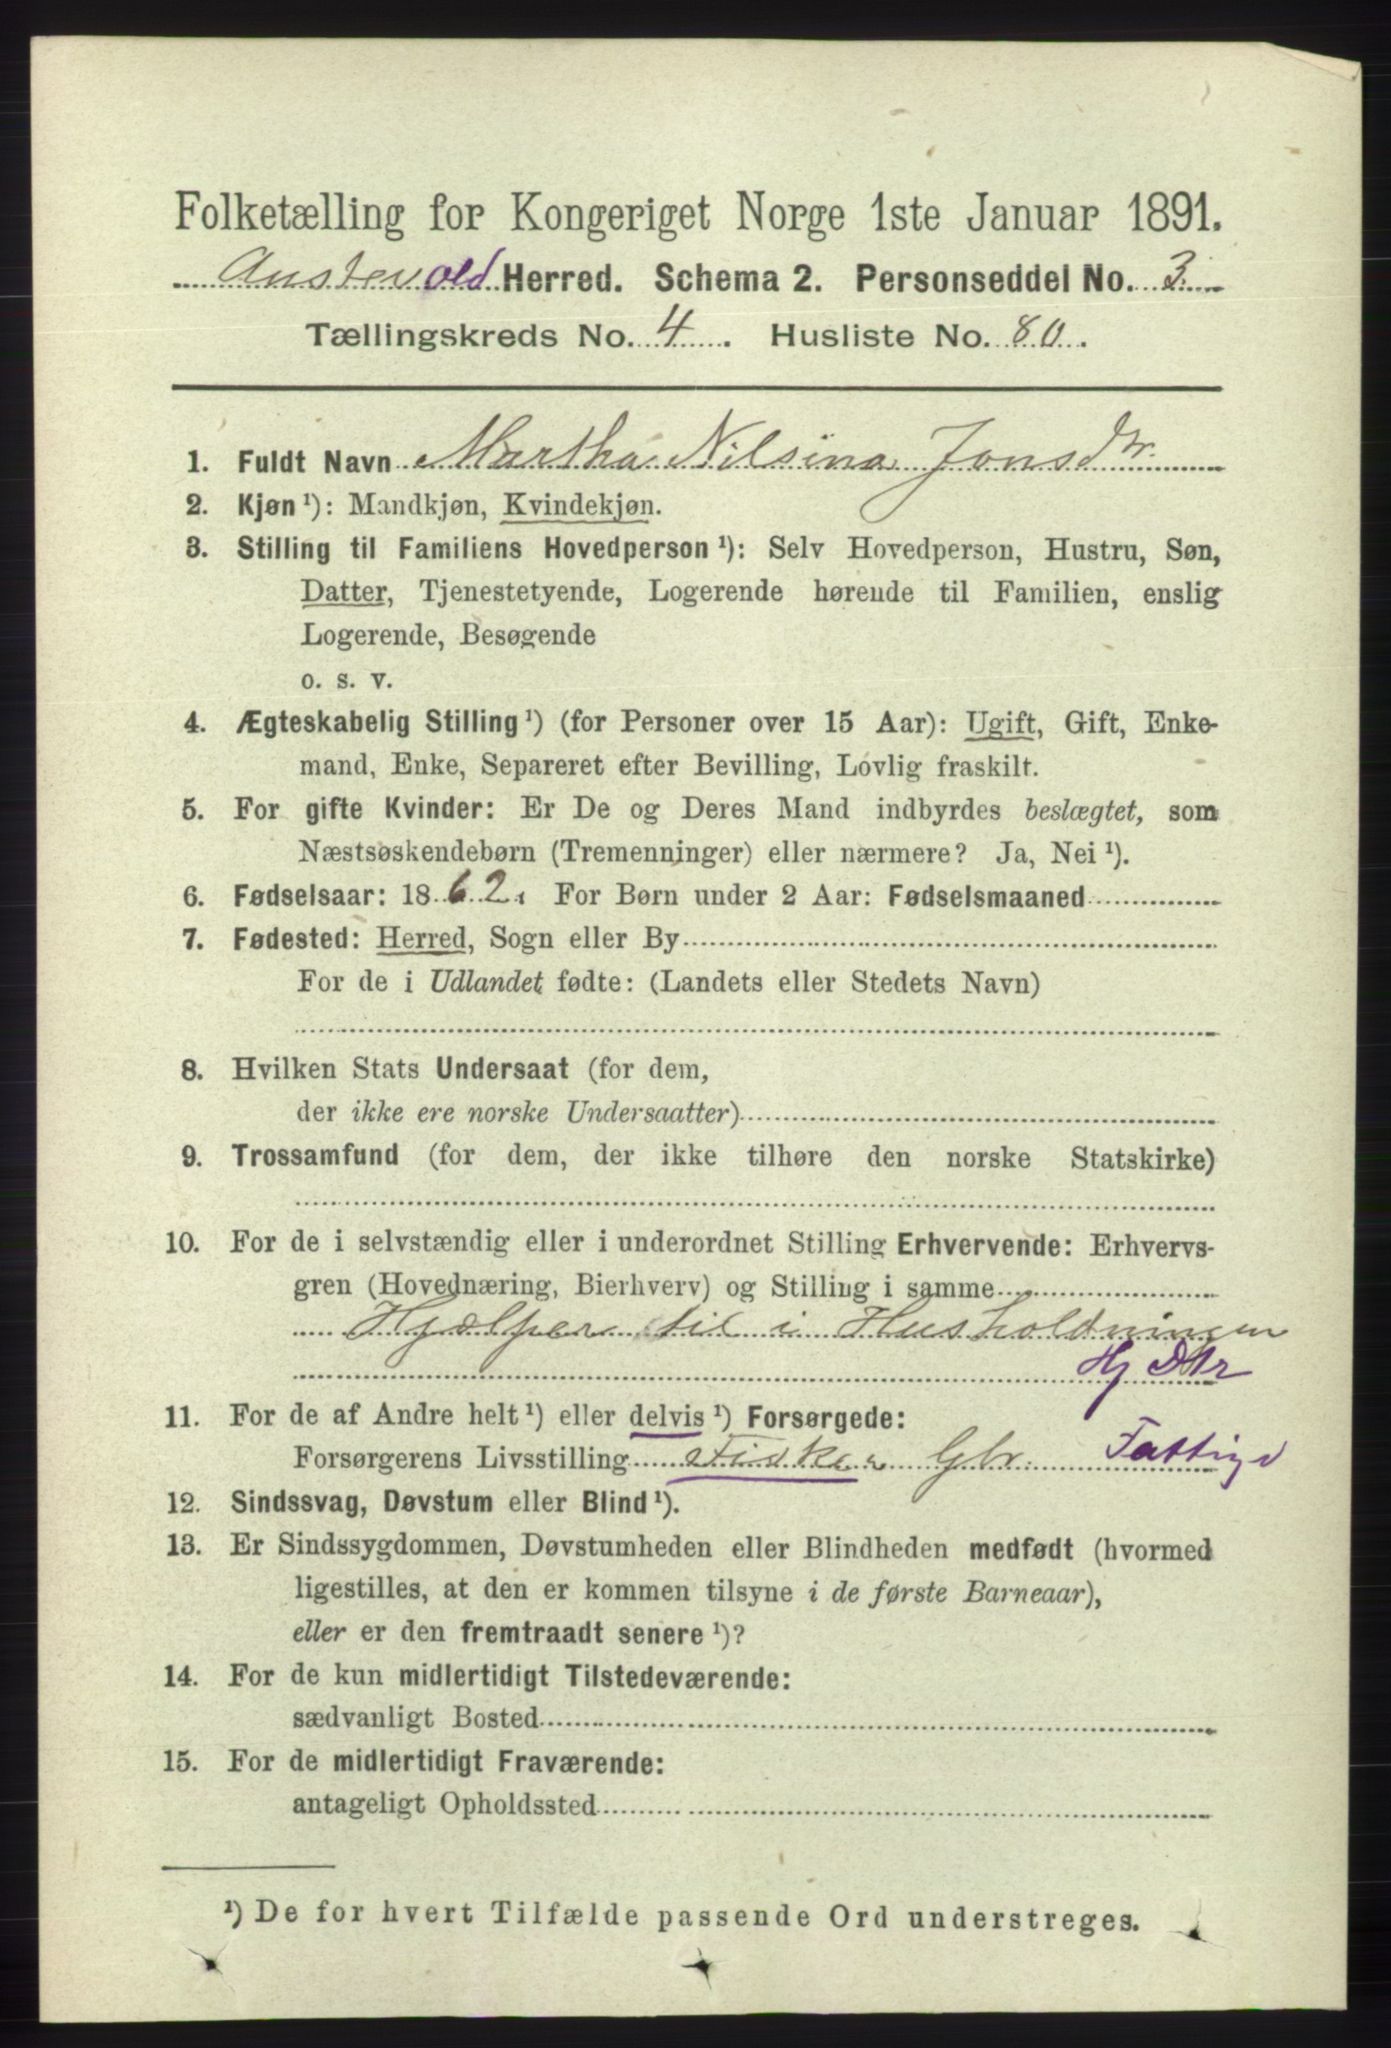 Folketælling for Kongeriget Norge 1ste Januar 1891.
Austevold Herred. Schema 2. Personseddel No. 3.
Tællingskreds No. 4. Husliste No. 80.
1. Fuldt Navn Martha Nilsina Jonsdtr.
2. Kjøn ¹): Mandkjøn, Kvindekjøn.
3. Stilling til Familiens Hovedperson ¹): Selv Hovedperson, Hustru, Søn,
Datter, Tjenestetyende, Logerende hørende til Familien, enslig
Logerende, Besøgende
o. s. v.
4. Ægteskabelig Stilling ¹) (for Personer over 15 Aar): Ugift, Gift, Enke-
mand, Enke, Separeret efter Bevilling, Lovlig fraskilt.
5. For gifte Kvinder: Er De og Deres Mand indbyrdes beslægtet, som
Næstsøskendebørn (Tremenninger) eller nærmere? Ja, Nei ¹).
6. Fødselsaar: 1862. For Børn under 2 Aar: Fødselsmaaned
7. Fødested: Herred, Sogn eller By
For de i Udlandet fødte: (Landets eller Stedets Navn)
8. Hvilken Stats Undersaat (for dem,
der ikke ere norske Undersaatter)
9. Trossamfund (for dem, der ikke tilhøre den norske Statskirke)
10. For de i selvstændig eller i underordnet Stilling Erhvervende: Erhvervs-
gren (Hovednæring, Bierhverv) og Stilling i samme
Hjælper til i Husholdningen
Hj Dtr
11. For de af Andre helt ¹) eller delvis ¹) Forsørgede:
Forsørgerens Livsstilling Fisker Gbr. Fattigv
12. Sindssvag, Døvstum eller Blind ¹).
13. Er Sindssygdommen, Døvstumheden eller Blindheden medfødt (hvormed
ligestilles, at den er kommen tilsyne i de første Barneaar),
eller er den fremtraadt senere ¹)?
14. For de kun midlertidigt Tilstedeværende:
sædvanligt Bosted
15. For de midlertidigt Fraværende:
antageligt Opholdssted
¹) De for hvert Tilfælde passende Ord understreges.